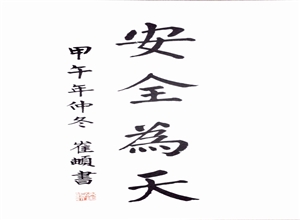 安全為天
甲午年仲冬 崔頔書